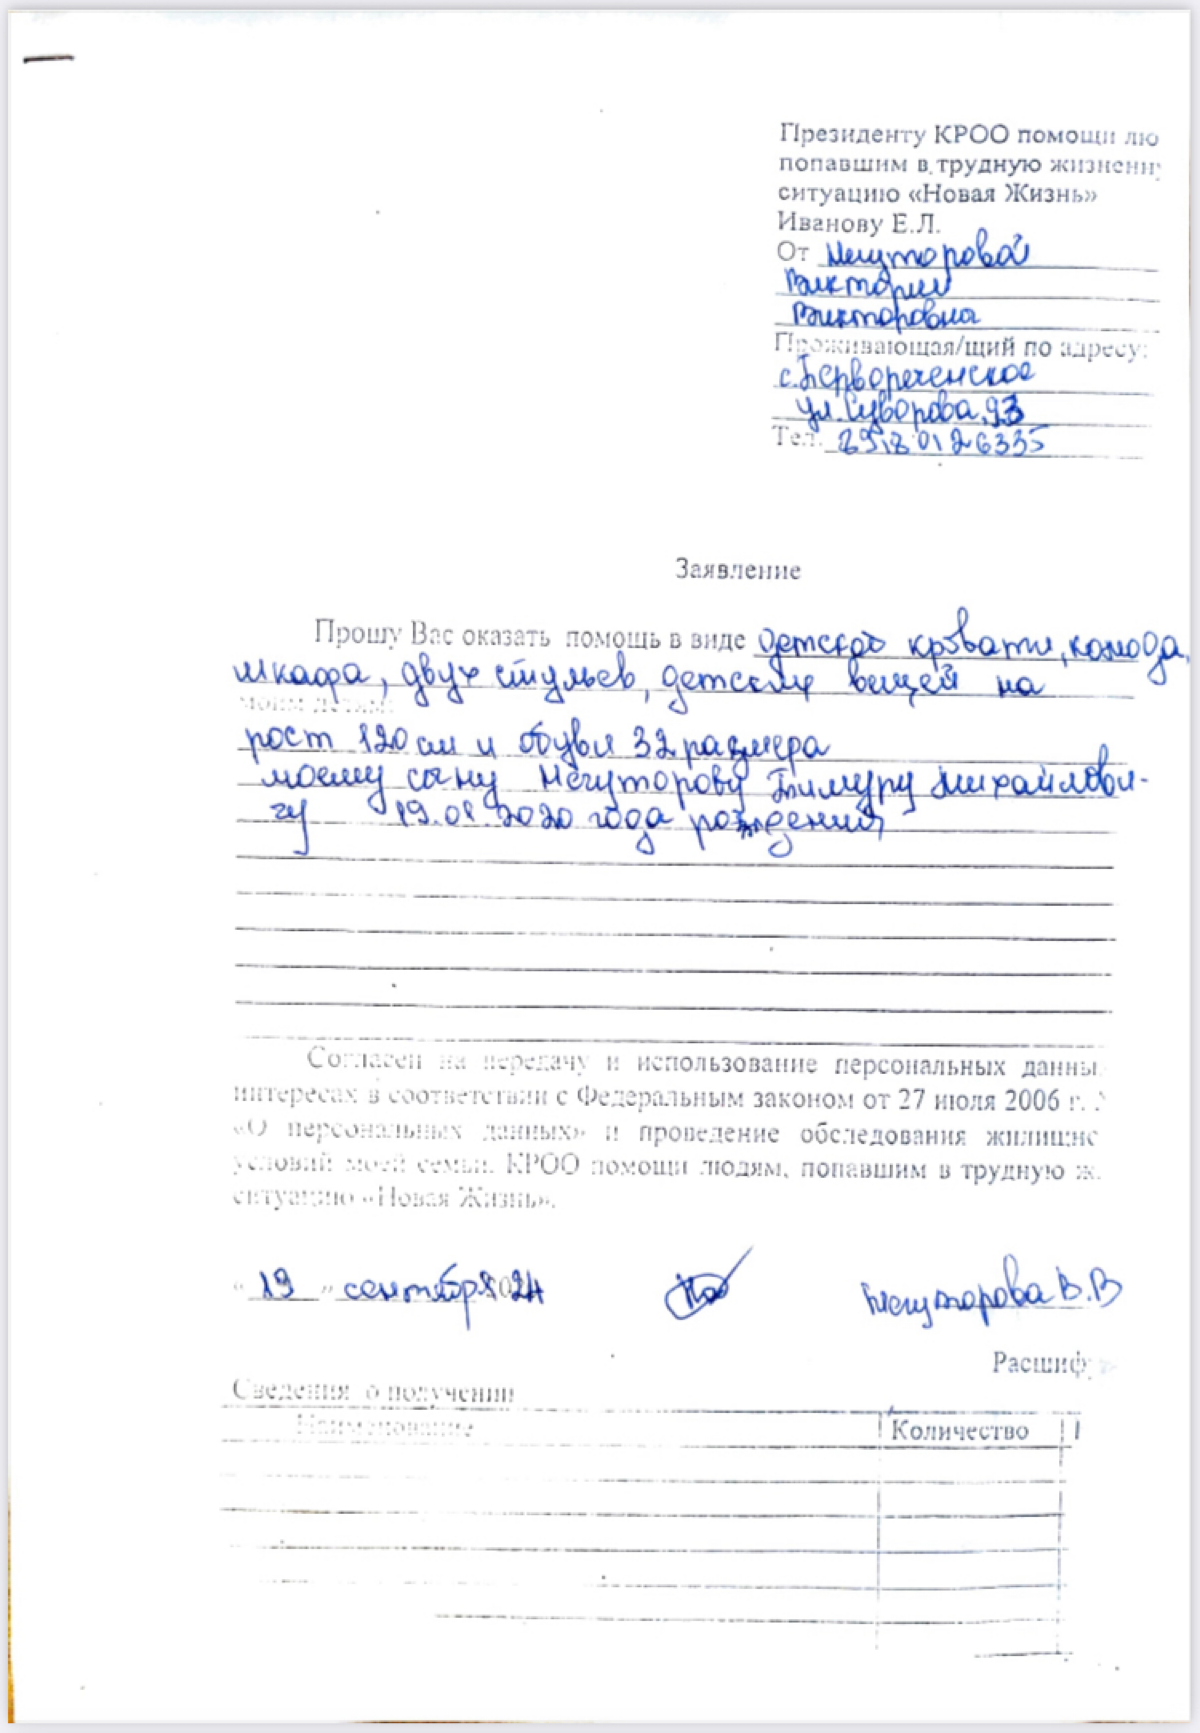 Президенту КРОО помощи лю
попавшим в трудную жизненну
ситуацию «Новая Жизнь»
Иванову Е.Л.
От Мечуторовой
Виктории
Викторовна
Проживающая/щий по адресу:
с.Первореченское
ул. Суворова, 93
Тел. 89180126335
Заявление
Прошу Вас оказать помощь в виде детской кровати, комода,
шкафа, двух стульев, детских вещей на
моим детям:
рост 120 см и обуви 32 размера
моему сыну Мечуторову Тимуру Михайлови-
чу 19.01.2020 года рождения
Согласен на передачу и использование персональных данны
интересах в соответствии с Федеральным законом от 27 июля 2006 г.
«О персональных данных» и проведение обследования жилищно
условий моей семьи. КРОО помощи людям, попавшим в трудную ж
ситуацию «Новая Жизнь».
« 19 » сентября 2024 Мечуторова В.В
Расшифр
Сведения о получении
Наименование Количество